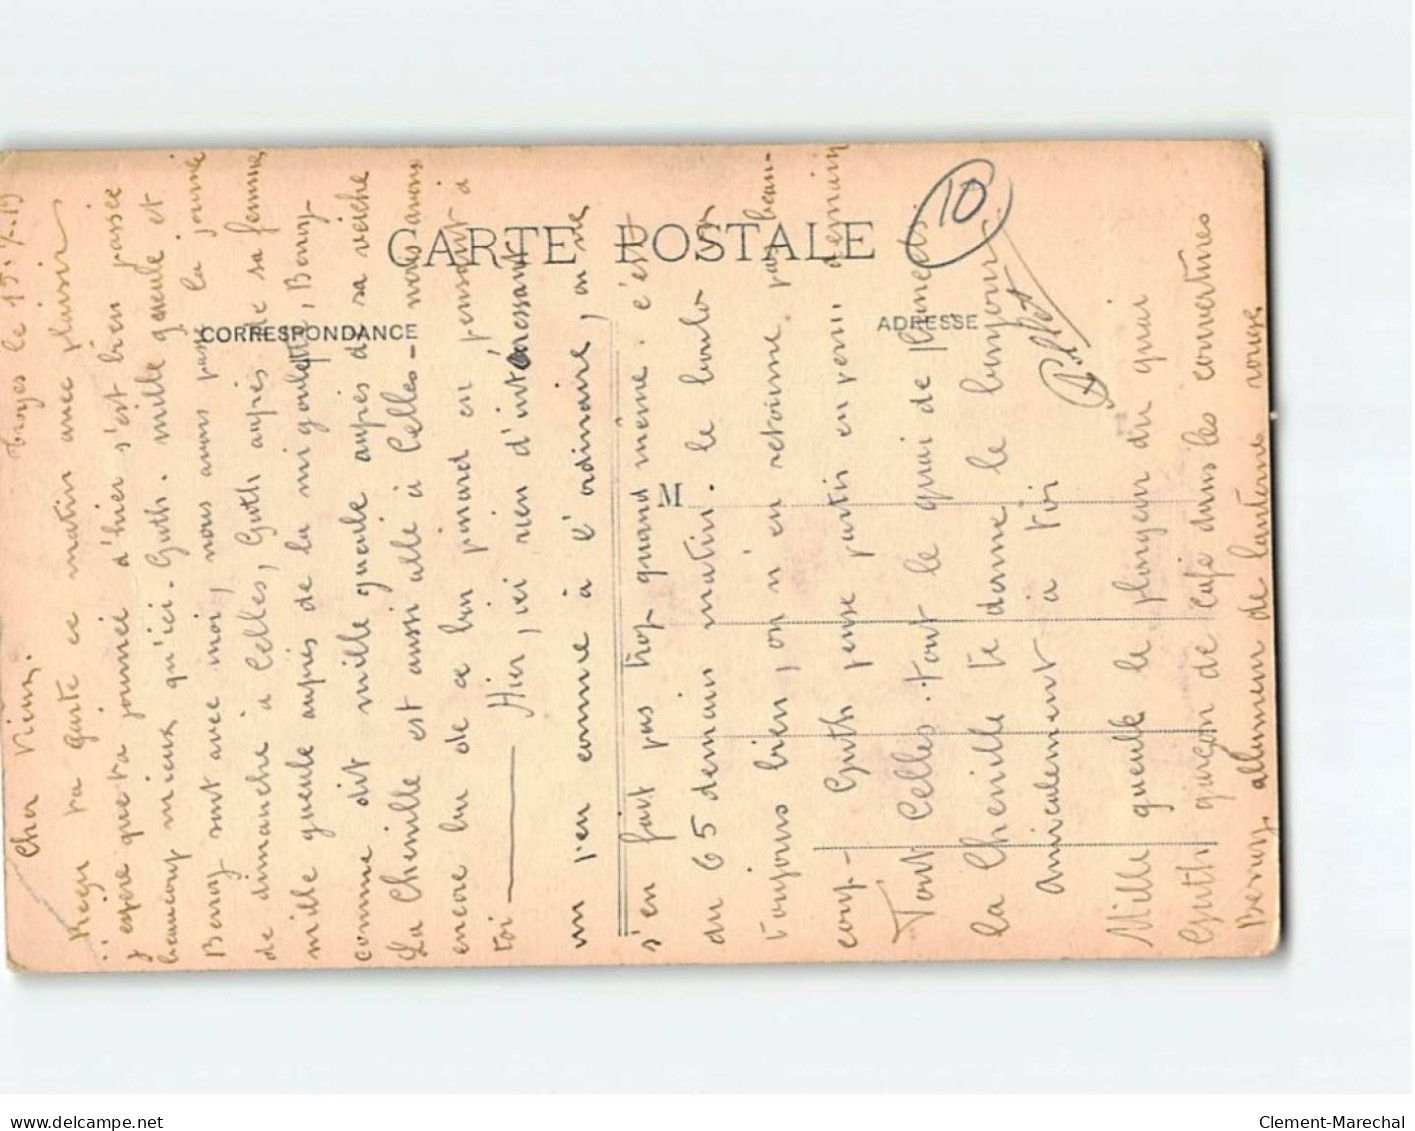 CARTE POSTALE
CORRESPONDANCE
ADRESSE
M
10
Troyes le 15.7.19
Cher Vieux.
Reçu ta carte ce matin avec plaisir
j'espère que ta journée d'hier s'est bien passée
beaucoup mieux qu'ici. Guth. mille gueule et
Berry sont avec moi, nous avons passé la journée
de dimanche à Celles, Guth auprès de sa femme
mille gueule auprès de la mi goulette, Berry
comme dit mille gueule auprès de sa vieille
La Chenille est aussi allé à Celles - nous avons
encore bu de ce bon pinard en pensant à
toi — Hier, ici rien d'intéressant
on s'en comme à l'ordinaire, on ne
s'en fait pas trop quand même. c'est
au 65 demain matin. le boulo va
toujours bien, on n'en retourne pas beau-
coup - Guth pense partir en perm demain
Tout Celles. tout le quai de
la Chenille te donne le bonjour.
amicalement à toi
Mille gueulle le plongeur du quai
Guth garçon de café dans les couvertures
Berry, allumeur de lanterne rouge